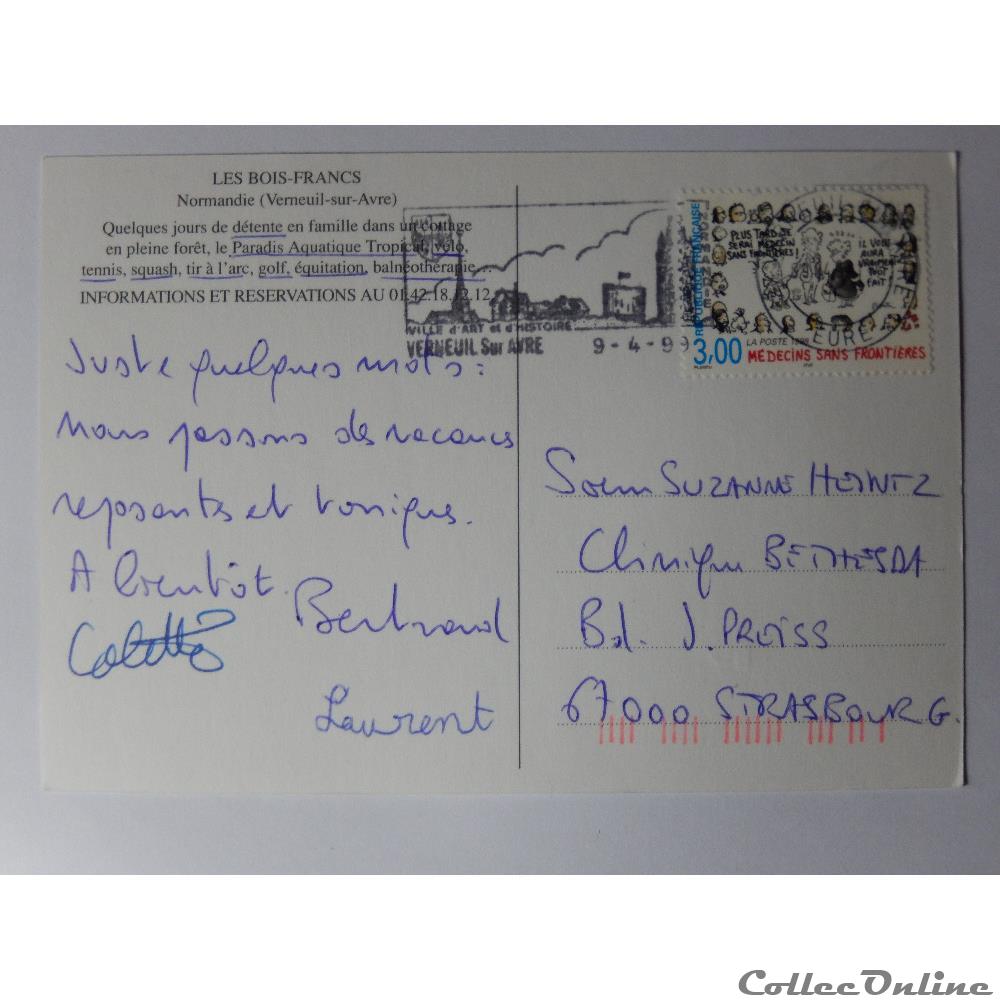 LES BOIS-FRANCS
Normandie (Verneuil-sur-Avre)
Quelques jours de détente en famille dans un cottage
en pleine forêt, le Paradis Aquatique Tropical, vélo,
tennis, squash, tir à l'arc, golf, équitation, balnéothérapie...
INFORMATIONS ET RESERVATIONS AU 01.42.18.12.12
Juste quelques mots:
nous passons des vacances
reposantes et toniques.
A bientôt.
Bertrand
Colette
Laurent
VILLE d'ART et d'HISTOIRE
VERNEUIL Sur AVRE 9-4-99
NORMANDIE
EURE
REPUBLIQUE FRANÇAISE
PLUS TARD JE
SERAI MÉDECIN
SANS FRONTIÈRES!
IL VOUS
AURA
VRAIMENT
TOUT
FAIT
3,00
LA POSTE 1998
MÉDECINS SANS FRONTIÈRES
Soeur SUZANNE HEINTZ
Clinique BETHESDA
Bd. J. PREISS
67000 STRASBOURG.
CollecOnline